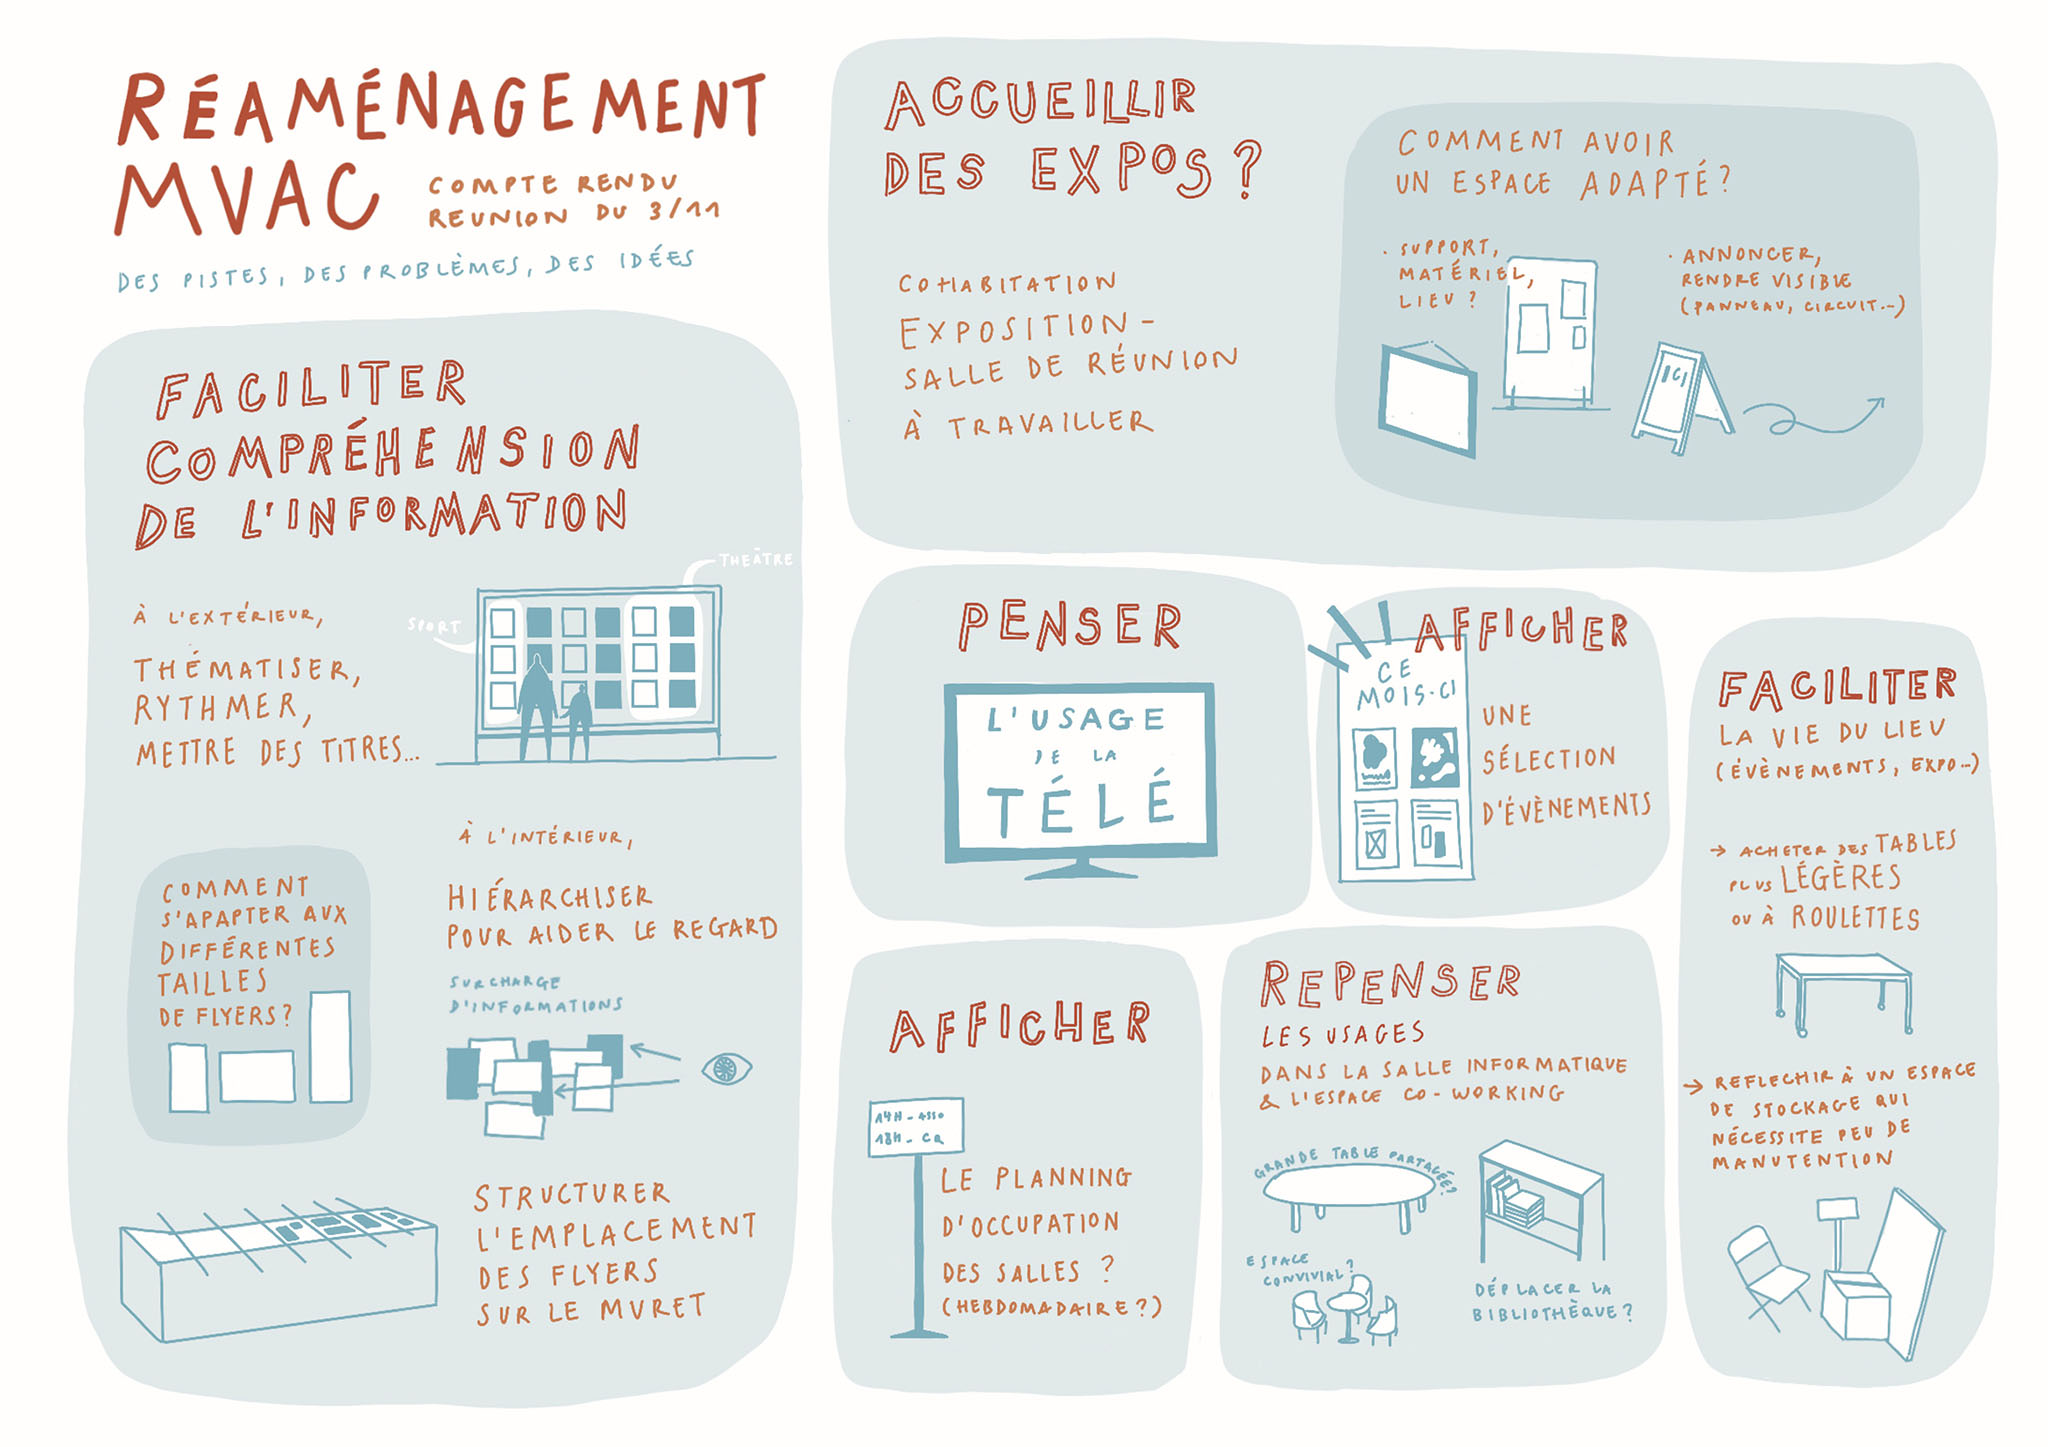 RÉAMÉNAGEMENT
MVAC
COMPTE RENDU
REUNION DU 3/11
DES PISTES, DES PROBLÈMES, DES IDÉES
FACILITER
COMPRÉHENSION
DE L'INFORMATION
À L'EXTÉRIEUR,
THÉMATISER,
RYTHMER,
METTRE DES TITRES...
SPORT
THEÂTRE
COMMENT
S'APAPTER AUX
DIFFÉRENTES
TAILLES
DE FLYERS?
À L'INTÉRIEUR,
HIÉRARCHISER
POUR AIDER LE REGARD
SURCHARGE
D'INFORMATIONS
STRUCTURER
L'EMPLACEMENT
DES FLYERS
SUR LE MURET
ACCUEILLIR
DES EXPOS?
COHABITATION
EXPOSITION -
SALLE DE RÉUNION
À TRAVAILLER
COMMENT AVOIR
UN ESPACE ADAPTÉ?
· SUPPORT,
MATÉRIEL,
LIEU?
· ANNONCER,
RENDRE VISIBLE
(PANNEAU, CIRCUIT...)
ICI
PENSER
L'USAGE
DE LA
TÉLÉ
AFFICHER
CE
MOIS-CI
UNE
SÉLECTION
D'ÉVÈNEMENTS
AFFICHER
14H - ASSO
18H - CQ
LE PLANNING
D'OCCUPATION
DES SALLES ?
(HEBDOMADAIRE?)
REPENSER
LES USAGES
DANS LA SALLE INFORMATIQUE
& L'ESPACE CO-WORKING
GRANDE TABLE PARTAGÉE?
ESPACE
CONVIVIAL?
DÉPLACER LA
BIBLIOTHÈQUE?
FACILITER
LA VIE DU LIEU
(ÉVÈNEMENTS, EXPO...)
→ ACHETER DES TABLES
PLUS LÉGÈRES
OU À ROULETTES
→ REFLECHIR À UN ESPACE
DE STOCKAGE QUI
NÉCESSITE PEU DE
MANUTENTION